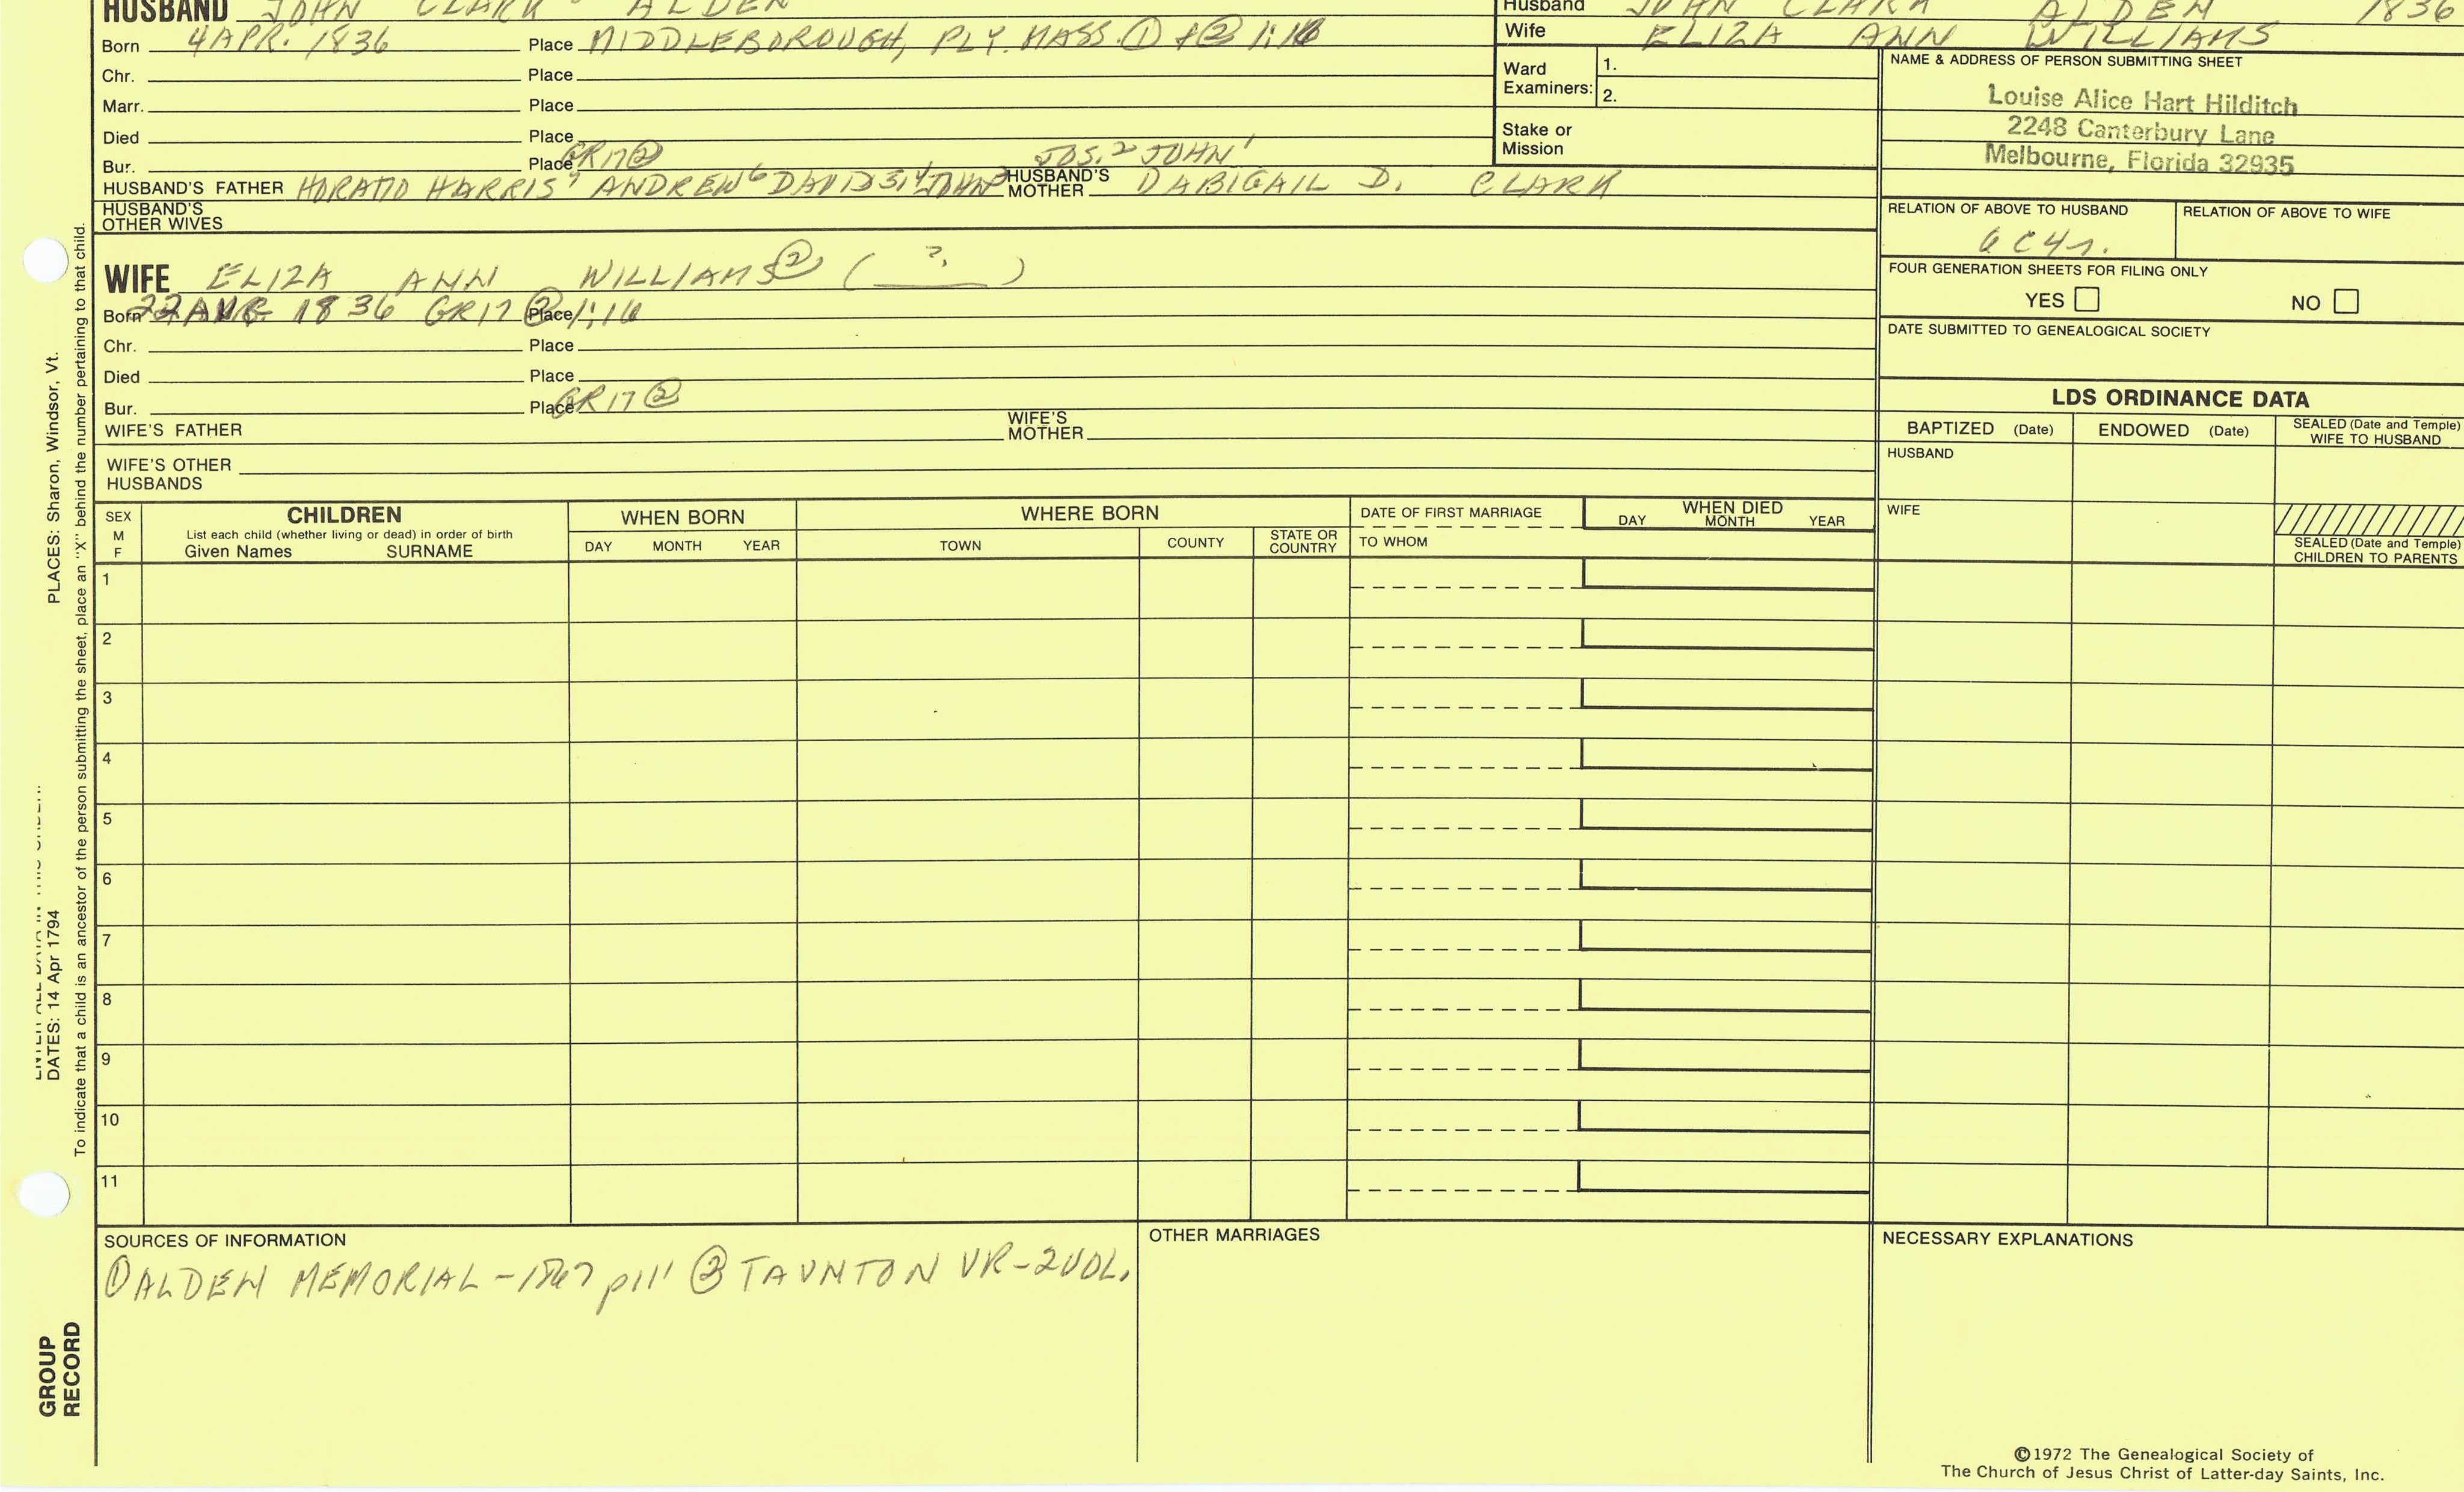 HUSBAND JOHN CLARK ALDEN
Born 4 APR. 1836 Place MIDDLEBOROUGH, PLY. MASS. ① + ② 1:16
Chr. Place
Marr. Place
Died Place
Bur. Place GR17 ② JOS.2 JOHN1
HUSBAND'S FATHER HORATIO HARRIS7 ANDREW6 DAVID5,4 JOHN3 HUSBAND'S MOTHER DABIGAIL D. CLARK
HUSBAND'S OTHER WIVES
WIFE ELIZA ANN WILLIAMS ② ( ? )
Born 22 AUG 1836 GR17 ② Place 1:16
Chr. Place
Died Place
Bur. Place GR17 ②
WIFE'S FATHER WIFE'S MOTHER
WIFE'S OTHER HUSBANDS
Husband JOHN CLARK ALDEN 1836
Wife ELIZA ANN WILLIAMS
Ward Examiners: 1.
2.
Stake or Mission
NAME & ADDRESS OF PERSON SUBMITTING SHEET
Louise Alice Hart Hilditch
2248 Canterbury Lane
Melbourne, Florida 32935
RELATION OF ABOVE TO HUSBAND RELATION OF ABOVE TO WIFE
6C4r.
FOUR GENERATION SHEETS FOR FILING ONLY
YES NO
DATE SUBMITTED TO GENEALOGICAL SOCIETY
LDS ORDINANCE DATA
BAPTIZED (Date) ENDOWED (Date) SEALED (Date and Temple) WIFE TO HUSBAND
HUSBAND
WIFE
SEALED (Date and Temple)
CHILDREN TO PARENTS
SEX M F
CHILDREN
List each child (whether living or dead) in order of birth
Given Names SURNAME
WHEN BORN
DAY MONTH YEAR
WHERE BORN
TOWN COUNTY STATE OR COUNTRY
DATE OF FIRST MARRIAGE
TO WHOM
WHEN DIED
DAY MONTH YEAR
1
2
3
4
5
6
7
8
9
10
11
SOURCES OF INFORMATION
① ALDEN MEMORIAL - 1867 p11' ② TAUNTON VR-2VOL.
OTHER MARRIAGES
NECESSARY EXPLANATIONS
©1972 The Genealogical Society of
The Church of Jesus Christ of Latter-day Saints, Inc.
DATES: 14 Apr 1794 PLACES: Sharon, Windsor, Vt.
To indicate that a child is an ancestor of the person submitting the sheet, place an "X" behind the number pertaining to that child.
GROUP
RECORD